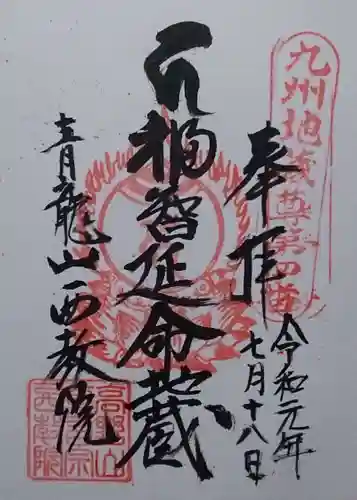 九州地蔵尊第四番
奉拝
令和元年
七月十八日
智延命地蔵
青龍山西教院
高野山
真言宗
西教院